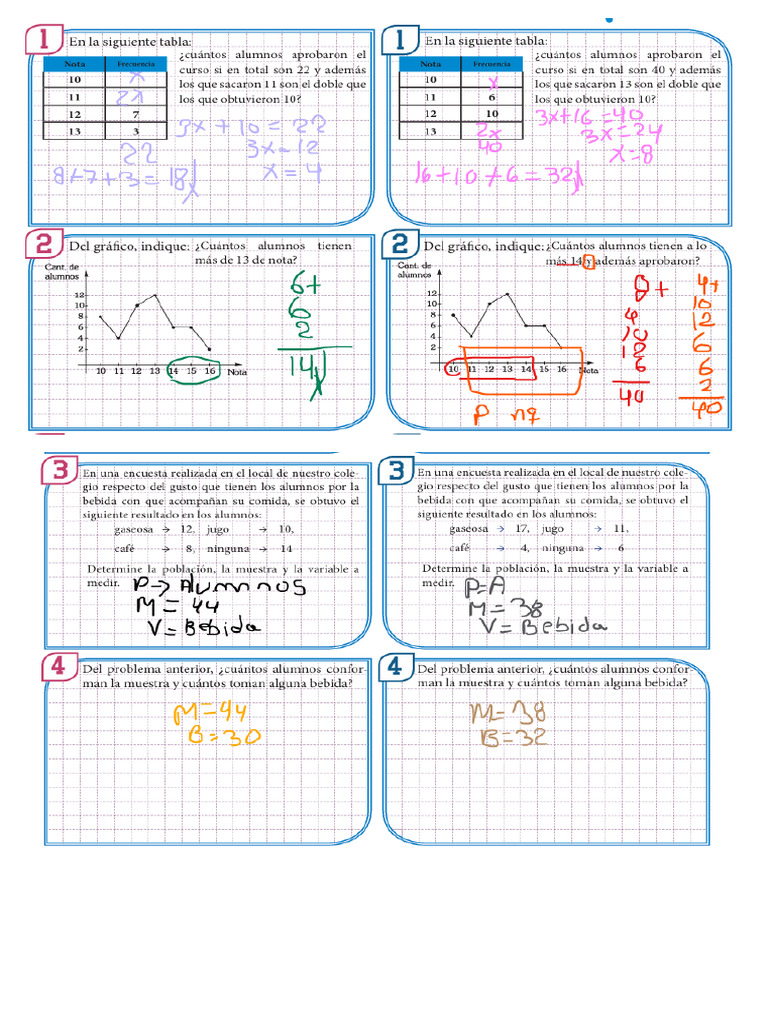 1 En la siguiente tabla:
Nota Frecuencia
10 x
11 2x
12 7
13 3
22
¿cuántos alumnos aprobaron el
curso si en total son 22 y además
los que sacaron 11 son el doble que
los que obtuvieron 10?
3x + 10 = 22
3x = 12
x = 4
8+7+3 = 18
1 En la siguiente tabla:
Nota Frecuencia
10 x
11 6
12 10
13 2x
40
¿cuántos alumnos aprobaron el
curso si en total son 40 y además
los que sacaron 13 son el doble que
los que obtuvieron 10?
3x+16 = 40
3x = 24
x = 8
16+10+6 = 32
2 Del gráfico, indique: ¿Cuántos alumnos tienen
más de 13 de nota?
Cant. de
alumnos
12
10
8
6
4
2
10 11 12 13 14 15 16 Nota
6+
6
2
14
2 Del gráfico, indique: ¿Cuántos alumnos tienen a lo
más 14 y además aprobaron?
Cant. de
alumnos
12
10
8
6
4
2
10 11 12 13 14 15 16 Nota
P
8+
4
10
6
40
4+
10
12
6
6
2
40
3 En una encuesta realizada en el local de nuestro cole-
gio respecto del gusto que tienen los alumnos por la
bebida con que acompañan su comida, se obtuvo el
siguiente resultado en los alumnos:
gaseosa → 12, jugo → 10,
café → 8, ninguna → 14
Determine la población, la muestra y la variable a
medir.
P → Alumnos
M = 44
V = Bebida
3 En una encuesta realizada en el local de nuestro cole-
gio respecto del gusto que tienen los alumnos por la
bebida con que acompañan su comida, se obtuvo el
siguiente resultado en los alumnos:
gaseosa → 17, jugo → 11,
café → 4, ninguna → 6
Determine la población, la muestra y la variable a
medir.
P=A
M = 38
V = Bebida
4 Del problema anterior, ¿cuántos alumnos confor-
man la muestra y cuántos toman alguna bebida?
M = 44
B = 30
4 Del problema anterior, ¿cuántos alumnos confor-
man la muestra y cuántos toman alguna bebida?
M = 38
B = 32